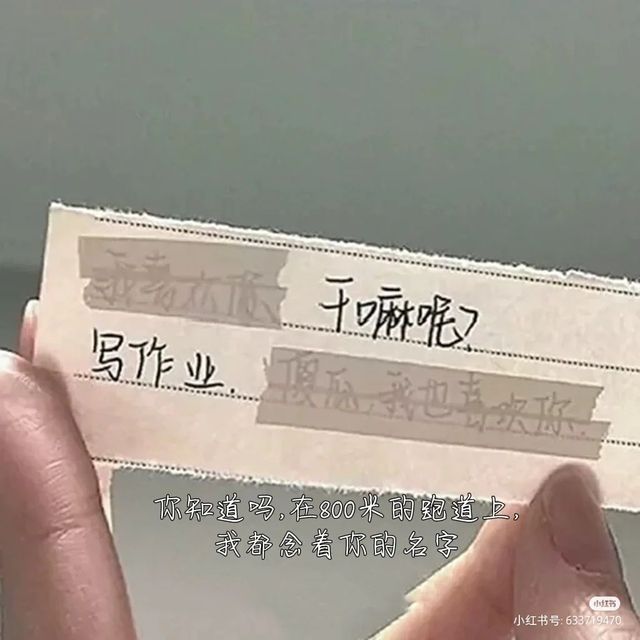 我喜欢你 干嘛呢?
写作业. 傻瓜,我也喜欢你.
你知道吗,在800米的跑道上,
我都念着你的名字
小红书
小红书号: 633719470